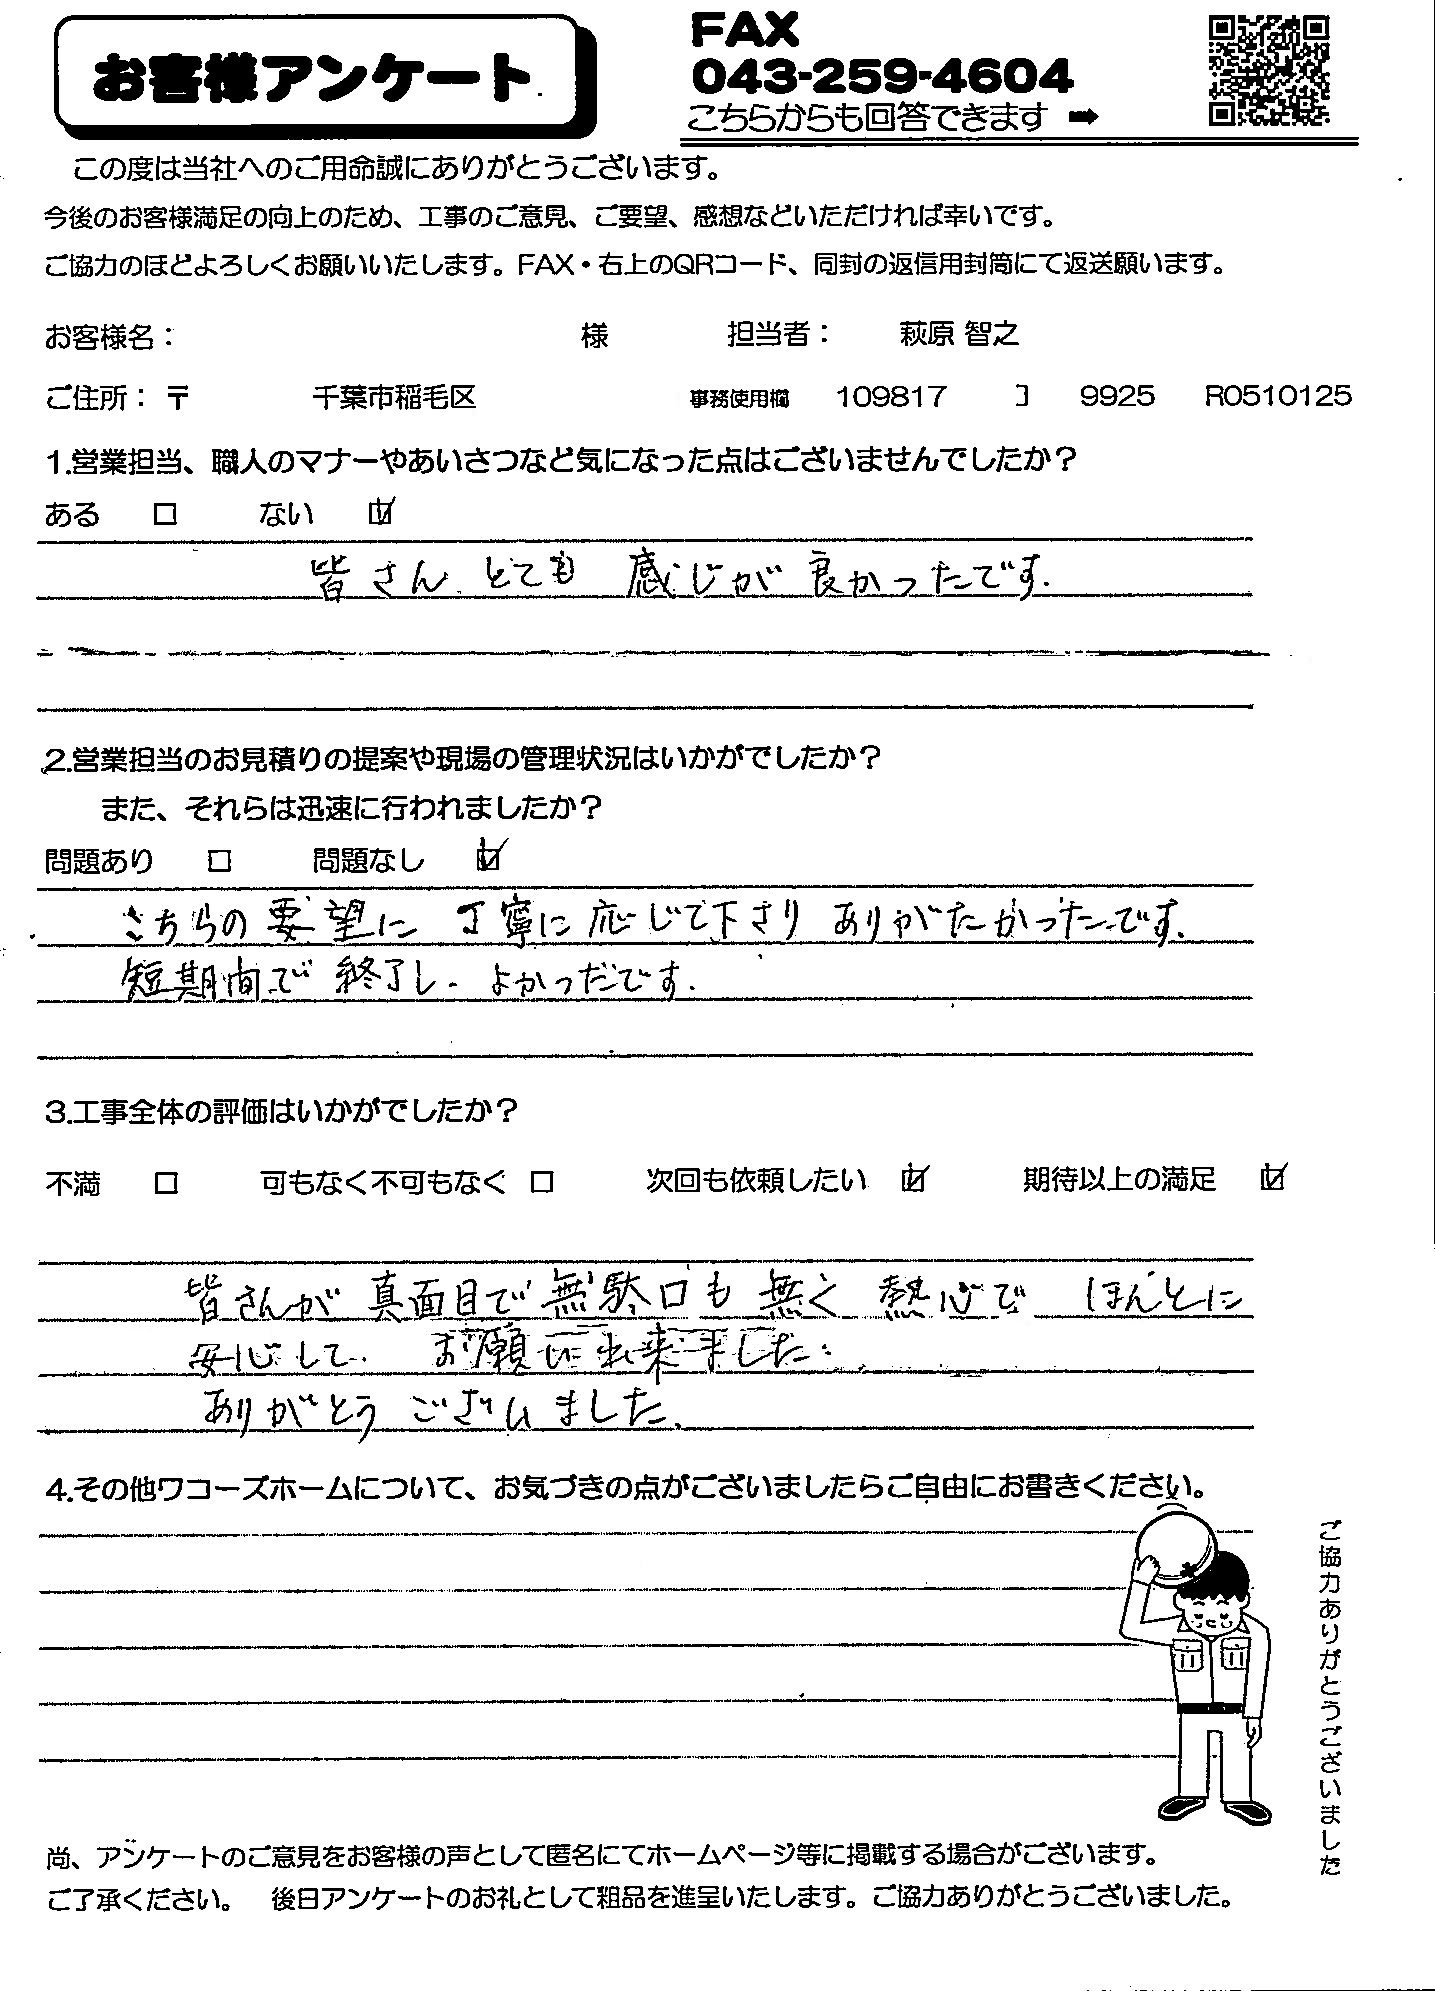 お客様アンケート
FAX
043-259-4604
こちらからも回答できます ➡
この度は当社へのご用命誠にありがとうございます。
今後のお客様満足の向上のため、工事のご意見、ご要望、感想などいただければ幸いです。
ご協力のほどよろしくお願いいたします。FAX・右上のQRコード、同封の返信用封筒にて返送願います。
お客様名： 様 担当者： 萩原 智之
ご住所：〒 千葉市稲毛区 事務使用欄 109817 コ 9925 R0510125
1.営業担当、職人のマナーやあいさつなど気になった点はございませんでしたか？
ある □ ない ☑
皆さん とても 感じが 良かったです.
2.営業担当のお見積りの提案や現場の管理状況はいかがでしたか？
また、それらは迅速に行われましたか？
問題あり □ 問題なし ☑
こちらの 要望に 丁寧に 応じて下さり ありがたかったです.
短期間で 終了し. よかっだです.
3.工事全体の評価はいかがでしたか？
不満 □ 可もなく不可もなく □ 次回も依頼したい ☑ 期待以上の満足 ☑
皆さんが 真面目で 無駄口も 無く 熱心で ほんとに
安心して. お願い出来ました.
ありがとう ございました.
4.その他ワコーズホームについて、お気づきの点がございましたらご自由にお書きください。
ご協力ありがとうございました
尚、アンケートのご意見をお客様の声として匿名にてホームページ等に掲載する場合がございます。
ご了承ください。 後日アンケートのお礼として粗品を進呈いたします。ご協力ありがとうございました。